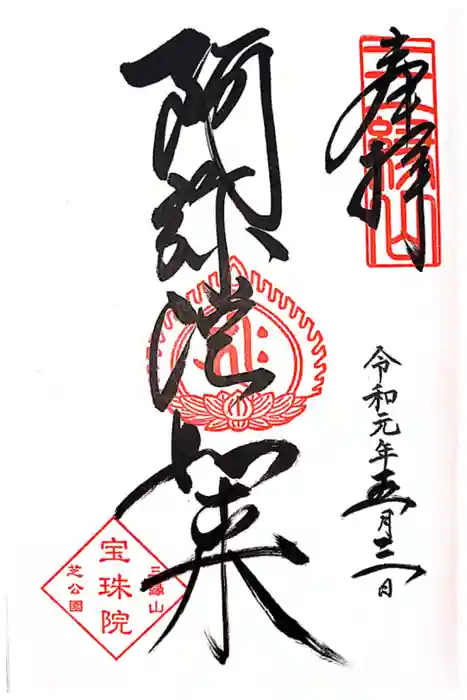 奉拝
三縁山
令和元年五月三日
阿弥陀如来
三縁山
宝珠院
芝公園